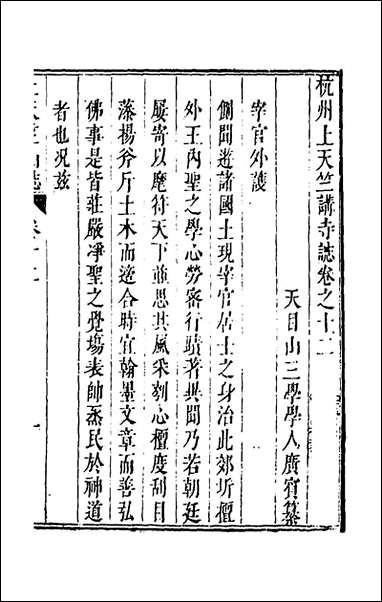 杭州上天竺講寺誌卷之十二
天目山三學學人廣賓纂
宰官外護
側聞遊諸國土現宰官居士之身治此郊圻檀
外王內聖之學心勞審行蹟著典聞乃若朝廷
屢寄以麾符天下並思其風采刻心檀度刮目
藻楊斧斤土木而適合時宜翰墨文章而善弘
佛事是皆莊嚴淨聖之覺場表帥烝民於神道
者也況茲